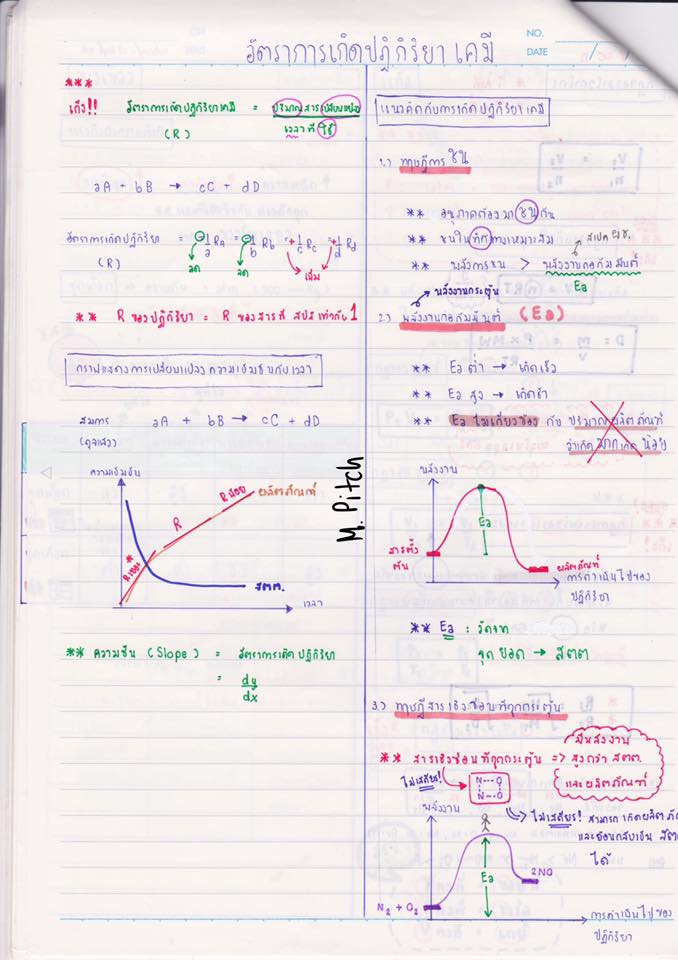 อัตราการเกิดปฏิกิริยาเคมี
NO.
DATE
***
เก็ง!! อัตราการเกิดปฏิกิริยาเคมี = ปริมาณสารเปลี่ยนแปลง
(R) เวลาที่ใช้
aA + bB → cC + dD
อัตราการเกิดปฏิกิริยา = -1/a Ra = -1/b Rb = +1/c Rc = +1/d Rd
(R) ลด ลด เพิ่ม
** R ของปฏิกิริยา = R ของสารที่ สปส เท่ากับ 1
กราฟแสดงการเปลี่ยนแปลงความเข้มข้นกับเวลา
สมการ aA + bB → cC + dD
(ดุลแล้ว)
ความเข้มข้น
R น้อย ผลิตภัณฑ์
R
R เยอะ *
สตต.
เวลา
** ความชัน (Slope) = อัตราการเกิดปฏิกิริยา
= dy/dx
M. Pitch
แนวคิดกับการเกิดปฏิกิริยาเคมี
1.) ทฤษฎีการชน
** อนุภาคต้องมาชนกัน
** ชนในทิศทางเหมาะสม
** พลังการชน > พลังงานก่อกัมมันต์
Ea
พลังงานกระตุ้น
2.) พลังงานก่อกัมมันต์ (Ea)
** Ea ต่ำ → เกิดเร็ว
** Ea สูง → เกิดช้า
** Ea ไม่เกี่ยวข้อง กับ ปริมาณผลิตภัณฑ์
ว่าเกิด มาก เกิด น้อย
พลังงาน
Ea
สารตั้ง
ต้น
ผลิตภัณฑ์
การดำเนินไปของ
ปฏิกิริยา
** Ea : วัดจาก
จุดยอด → สตต
3.) ทฤษฎีสารเชิงซ้อนที่ถูกกระตุ้น
** สารเชิงซ้อนที่ถูกกระตุ้น => มีพลังงาน
สูงกว่า สตต.
และผลิตภัณฑ์
ไม่เสถียร!
N---O
N---O
พลังงาน
ไม่เสถียร! สามารถเกิดผลิตภั
และย้อนกลับเป็น สตต
ได้
Ea
2NO
N2 + O2
การดำเนินไปของ
ปฏิกิริยา